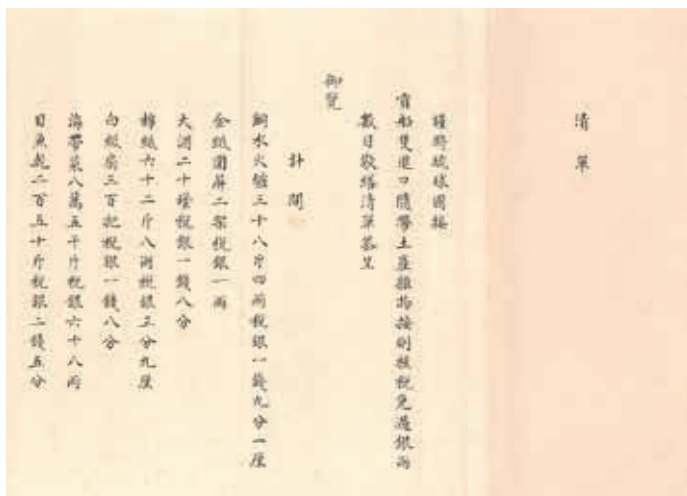 清單
謹將琉球國接
貢船隻進口隨帶土產雜物按則核稅免過銀兩
數目敬繕清單恭呈
御覽
計開
銅水火爐三十八斤四兩稅銀一錢九分一厘
金紙圍屏二架稅銀一兩
大酒二十罈稅銀一錢八分
棉紙六十二斤八兩稅銀三分九厘
白紙扇三百把稅銀一錢八分
海帶菜八萬五千斤稅銀六十八兩
目魚乾二百五十斤稅銀二錢五分